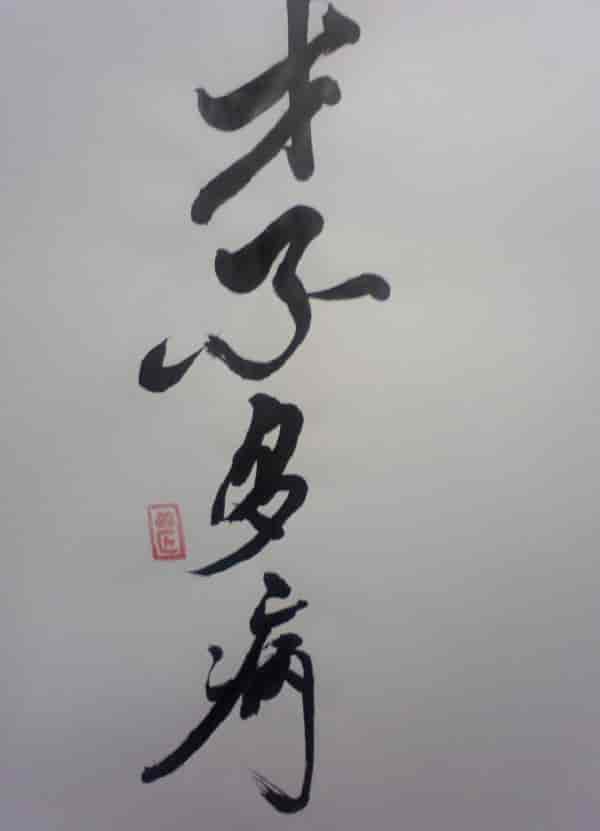 才子多病